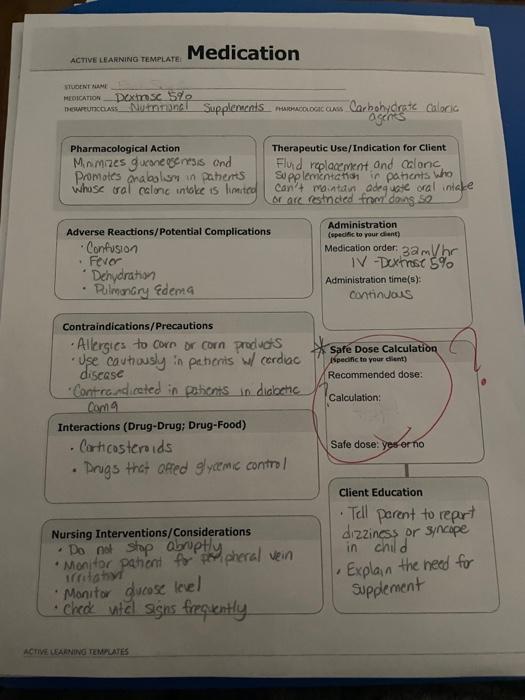 ACTIVE LEARNING TEMPLATE: Medication
STUDENT NAME
MEDICATION Dextrose 5%
THERAPEUTIC CLASS Nutritional Supplements PHARMACOLOGIC CLASS Carbohydrate Caloric
agents
Pharmacological Action
Minimizes gluconeogenesis and
Promotes anabolism in patients
whose oral caloric intake is limited
Therapeutic Use/Indication for Client
Fluid replacement and caloric
supplementation in patients who
can't maintain adequate oral intake
or are restricted from doing so
Adverse Reactions/Potential Complications
· Confusion
· Fever
· Dehydration
· Pulmonary Edema
Administration
(specific to your client)
Medication order: 32ml/hr
IV - Dextrose 5%
Administration time(s):
continuous
Contraindications/Precautions
· Allergies to corn or corn products
· Use cautiously in patients w/ cardiac
disease
· Contraindicated in patients in diabetic
coma
* Safe Dose Calculation ?
(specific to your client)
Recommended dose:
Calculation:
Safe dose: yes or no
Interactions (Drug-Drug; Drug-Food)
· Corticosteroids
· Drugs that affect glycemic control
Client Education
· Tell parent to report
dizziness or syncope
in child
· Explain the need for
supplement
Nursing Interventions/Considerations
· Do not stop abruptly
· Monitor patient for peripheral vein
irritation
· Monitor glucose level
· Check vital signs frequently
ACTIVE LEARNING TEMPLATES